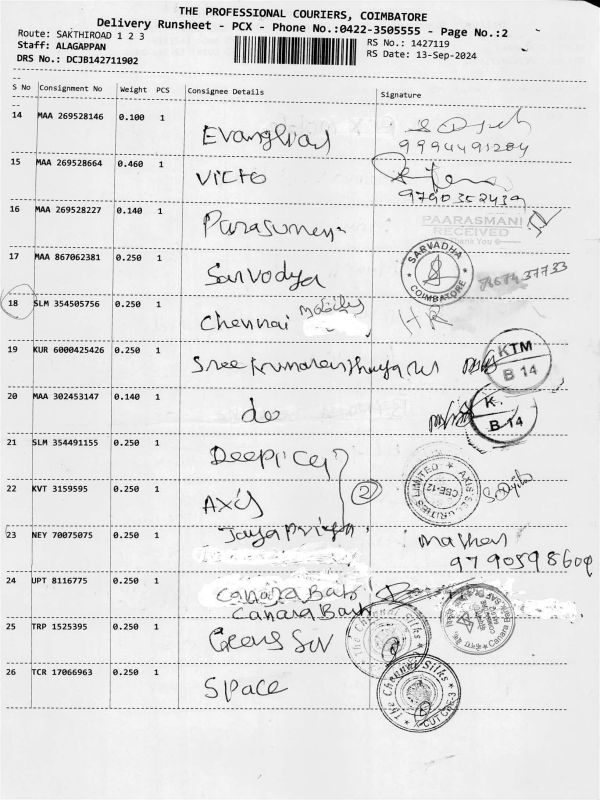 THE PROFESSIONAL COURIERS, COIMBATORE
Delivery Runsheet - PCX - Phone No.:0422-3505555 - Page No.:2
Route: SAKTHIROAD 1 2 3
Staff: ALAGAPPAN
DRS No.: DCJB142711902
RS No.: 1427119
RS Date: 13-Sep-2024
S No Consignment No Weight PCS Consignee Details Signature
14 MAA 269528146 0.100 1
9994491284
15 MAA 269528664 0.460 1 Victo
9790352439
16 MAA 269528227 0.140 1
PAARASMANI
RECEIVED
Thank You
17 MAA 867062381 0.250 1 Sarvodya
SARVADHA
COIMBATORE
37733
18 SLM 354505756 0.250 1 Chennai mobiles
HR
19 KUR 6000425426 0.250 1
KTM
B 14
20 MAA 302453147 0.140 1 do
K.
B 14
21 SLM 354491155 0.250 1 Deepica
22 KVT 3159595 0.250 1 Axis
2
AXIS SECURITIES LIMITED
CBE-12
23 NEY 70075075 0.250 1 Jayapriya
9790598604
24 UPT 8116775 0.250 1 Canara Bank
Canara Bank
Canara Bank
25 TRP 1525395 0.250 1
The Chennai Silks
26 TCR 17066963 0.250 1 Space
The Chennai Silks
X-CUT CBE-3